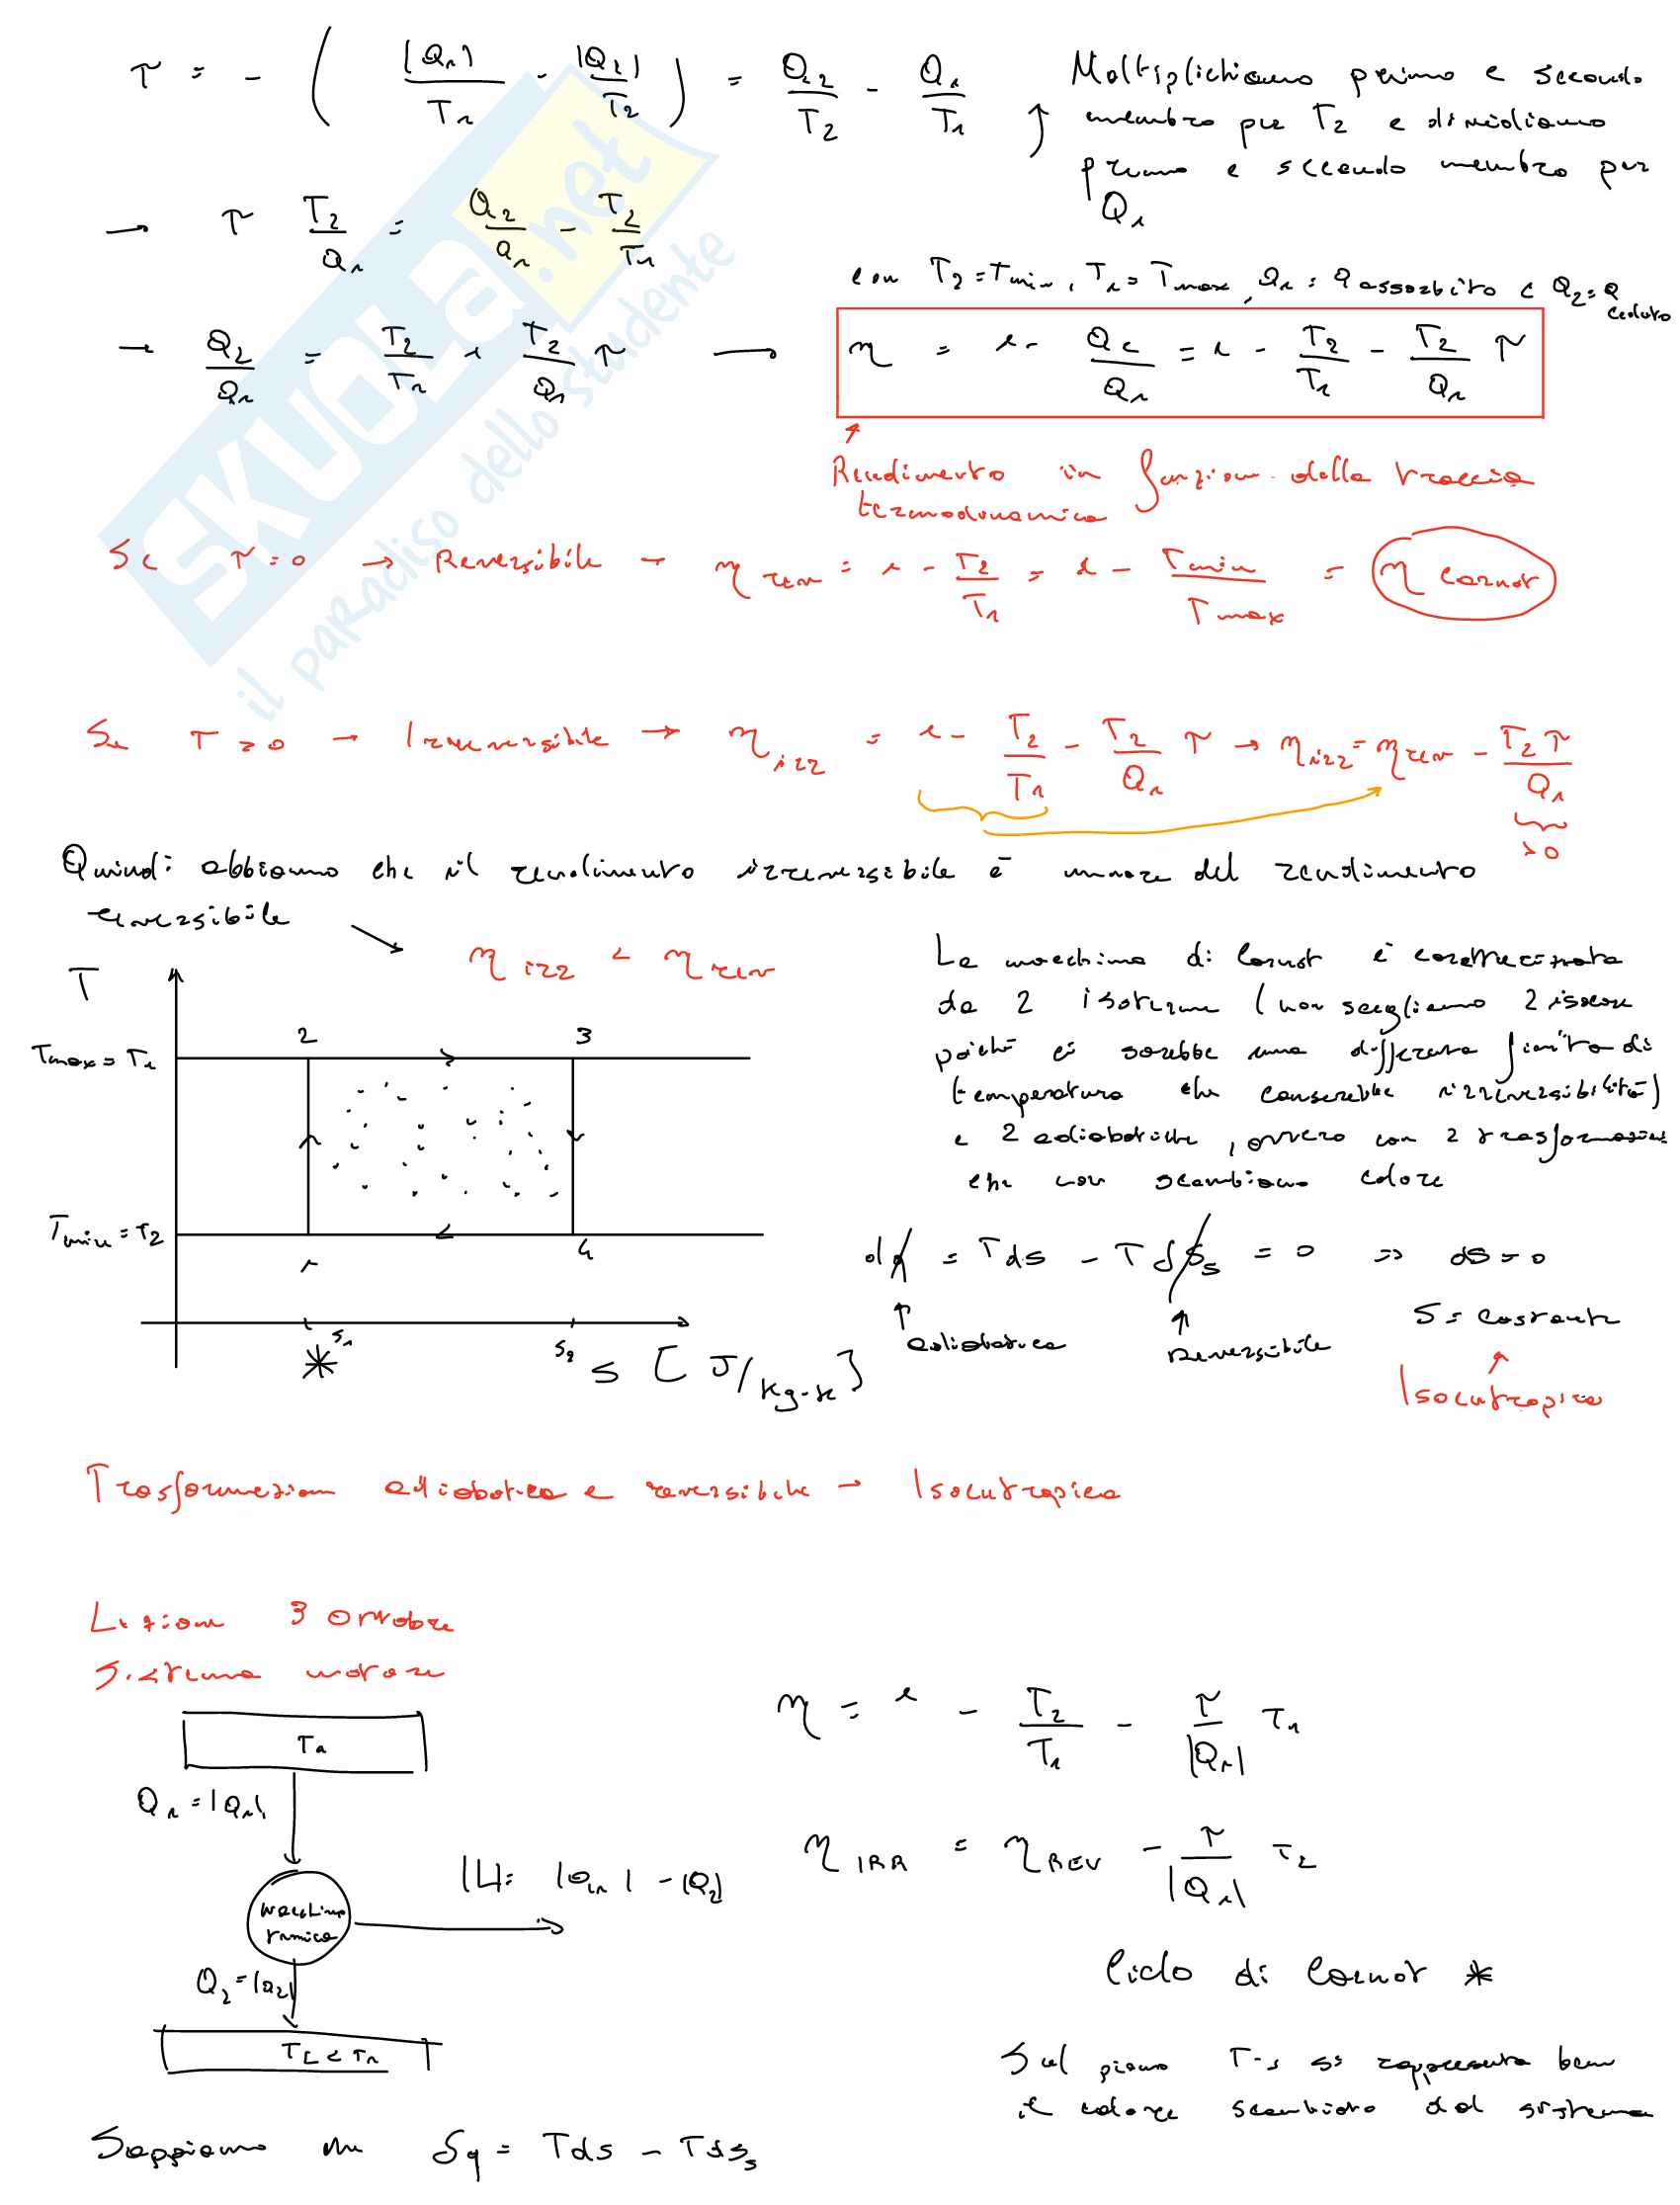 τ = - ( |Q₁|/T₁ - |Q₂|/T₂ ) = Q₂/T₂ - Q₁/T₁ ↑ Moltiplichiamo primo e secondo
membro per T₂ e dividiamo
primo e secondo membro per
Q₁
→ τ T₂/Q₁ = Q₂/Q₁ - T₂/T₁
con T₂ = Tmin, T₁ = Tmax, Q₁ = Q assorbito e Q₂ = Q ceduto
→ Q₂/Q₁ = T₂/T₁ + T₂/Q₁ τ → η = 1 - Q₂/Q₁ = 1 - T₂/T₁ - T₂/Q₁ τ
Rendimento in funzione della traccia
termodinamica
Se τ = 0 → Reversibile → η rev = 1 - T₂/T₁ = 1 - Tmin/Tmax = η Carnot
Se τ > 0 → Irreversibile → η irr = 1 - T₂/T₁ - T₂/Q₁ τ → η irr = η rev - T₂ τ/Q₁
> 0
Quindi abbiamo che il rendimento irreversibile è minore del rendimento
reversibile
η irr < η rev
T
Tmax = T₁
2
3
Tmin = T₂
1
4
s₁
s₂
*
s [J/kg·K]
La macchina di Carnot è caratterizzata
da 2 isoterme (non scegliamo 2 isocore
poiché ci sarebbe una differenza finita di
temperatura che causerebbe irreversibilità)
e 2 adiabatiche, ovvero con 2 trasformazioni
che non scambiano calore
dq = Tds - Tδs_s = 0 ⇒ ds = 0
adiabatica
Reversibile
S = costante
Isoentropica
Trasformazione adiabatica e reversibile → Isoentropica
Lezione 3 Ottobre
Sistema motore
T₁
Q₁ = |Q₁|
macchina
termica
|L| = |Q₁| - |Q₂|
Q₂ = |Q₂|
T₂ < T₁
η = 1 - T₂/T₁ - τ/|Q₁| T₂
η IRR = η REV - τ/|Q₁| T₂
Ciclo di Carnot *
Sul piano T-s si rappresenta bene
il calore scambiato dal sistema
Sappiamo che δq = Tds - Tds_s
SKUOLA.net
il paradiso dello studente